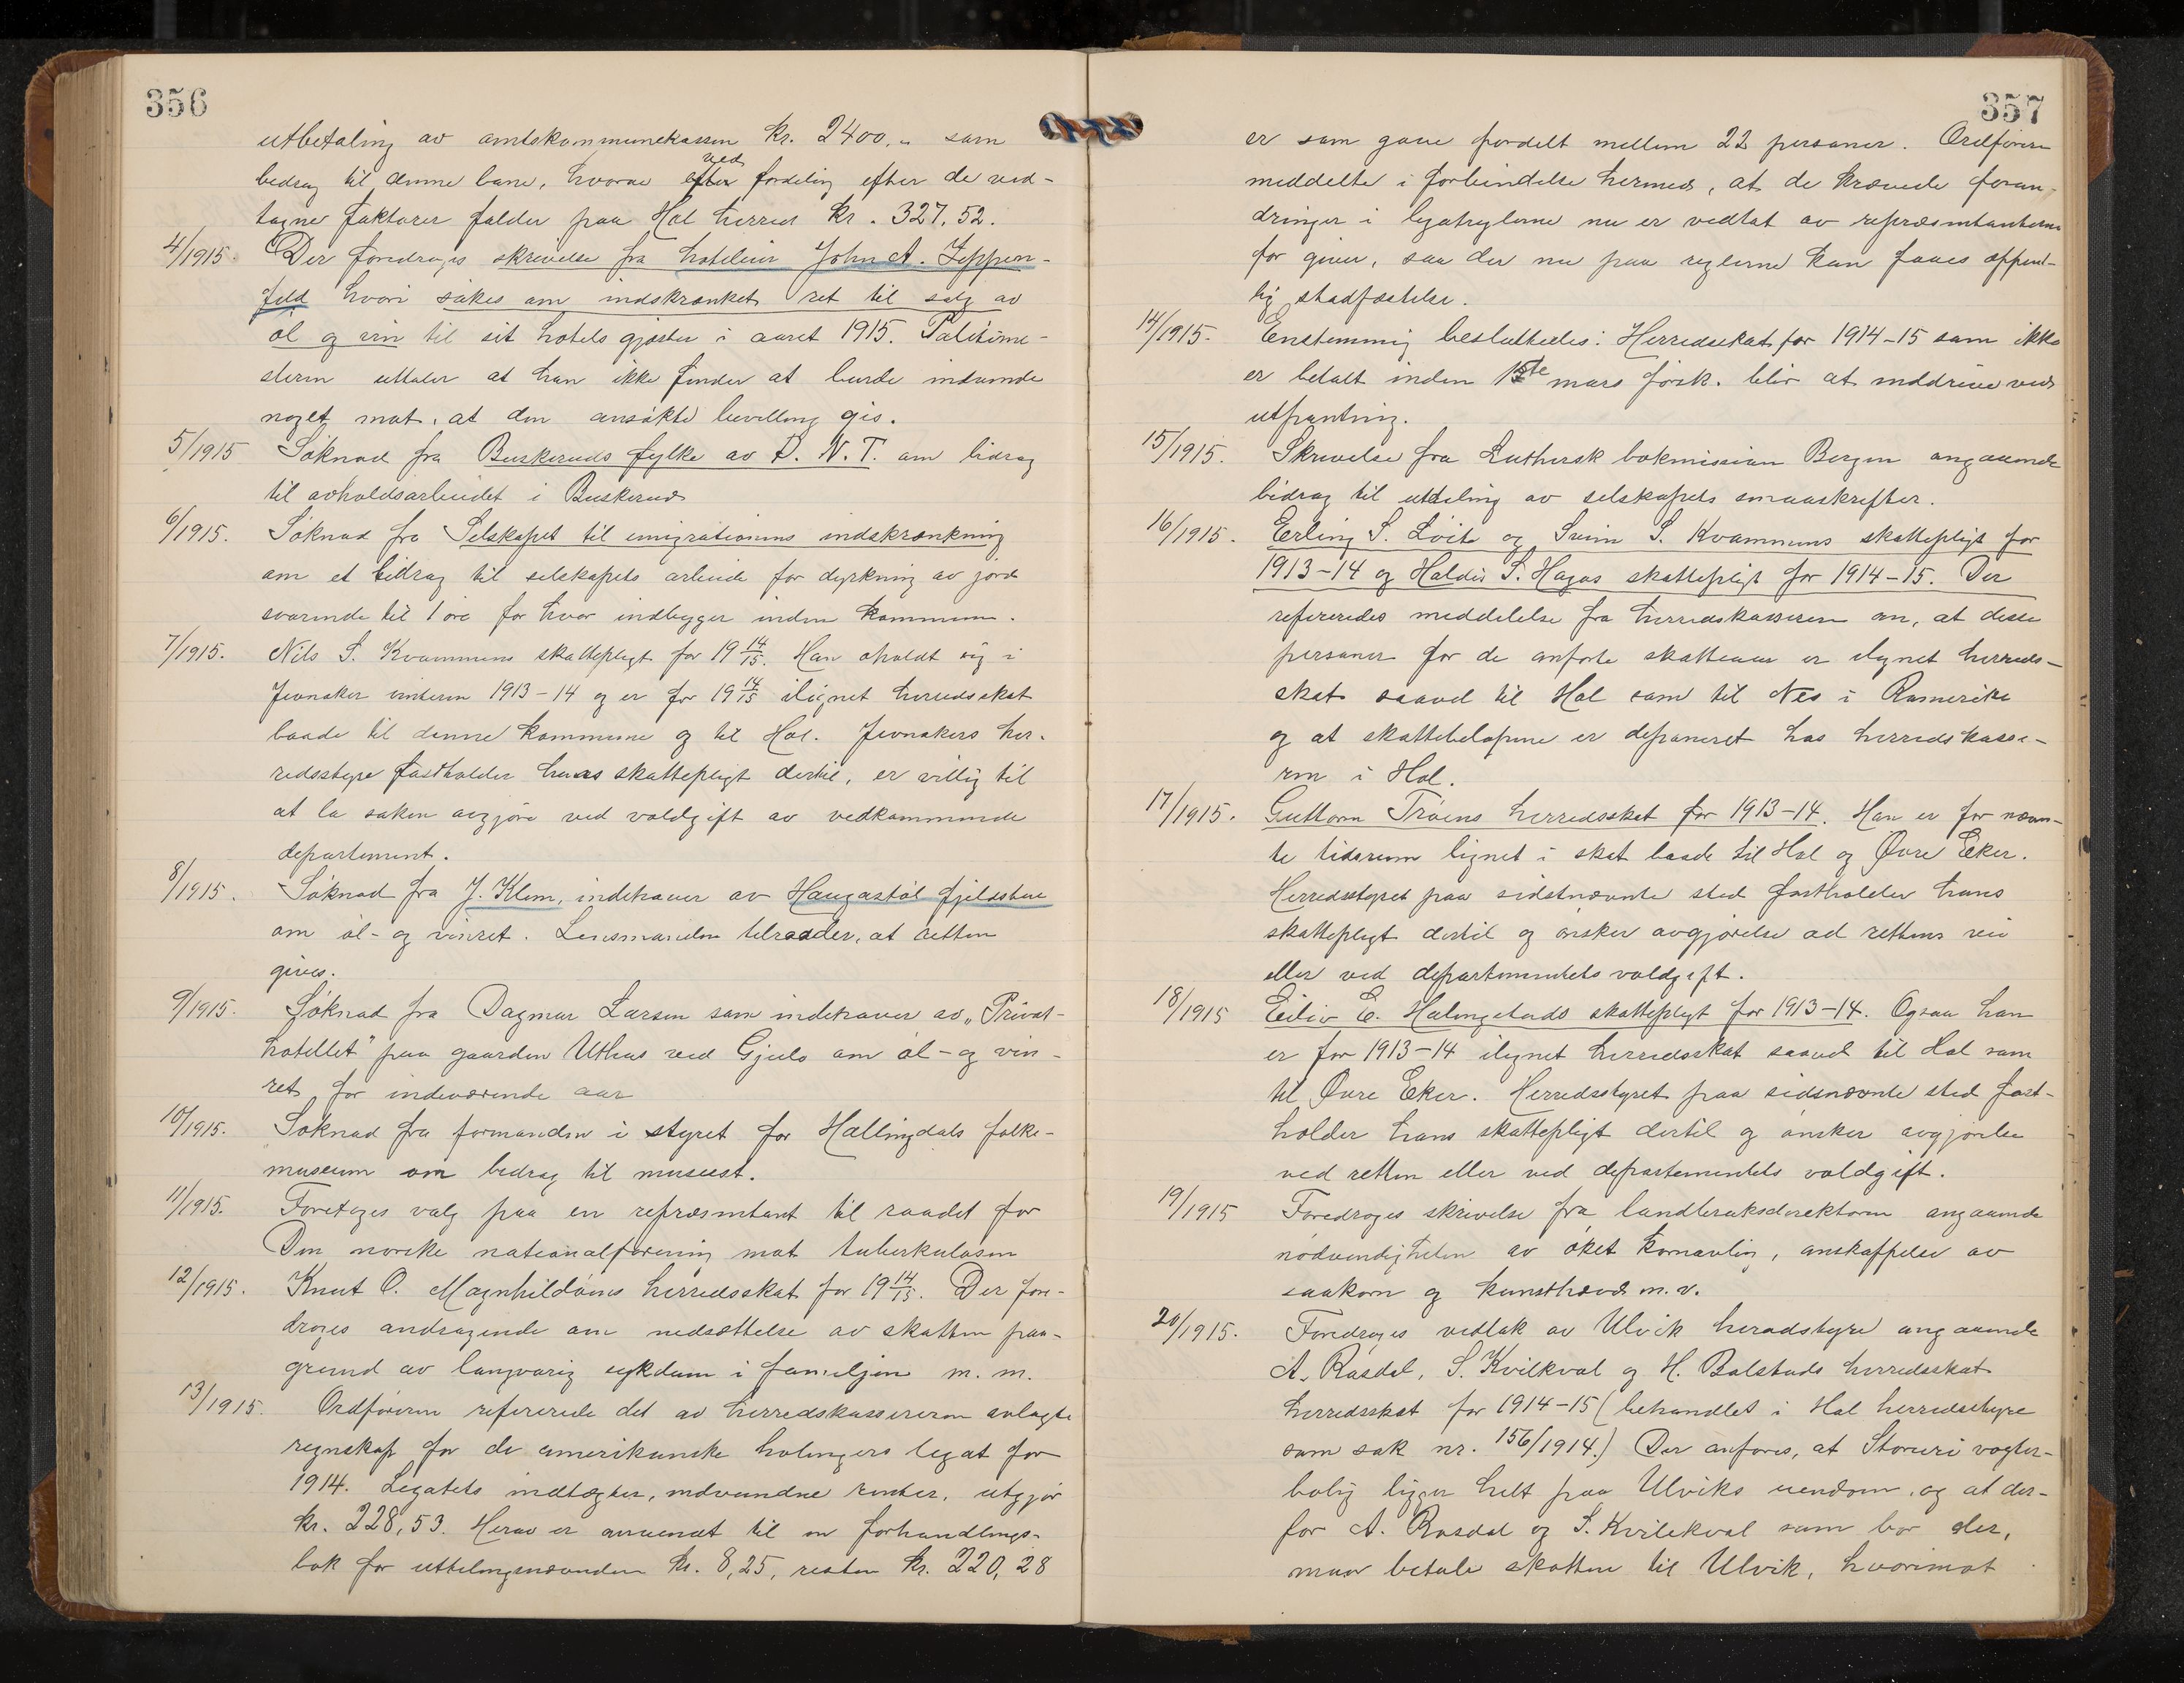 356
utbetaling av amtskommunekassen kr. 2400,- som
bedrag til denne bane, hvorav ved fordeling efter de ved-
tagne faktorer falder paa Hol herred kr. 327,52.
4/1915. Der foredroges skrivelse fra hoteleier John A. Zeppen-
feld hvori søkes om indskrænket ret til salg av
øl og vin til sit hotels gjæster i aaret 1915. Politime-
steren uttaler at han ikke finder at burde indvende
noget mot, at den ansøkte bevilling gis.
5/1915 Søknad fra Buskeruds fylke av D. N. T. om bidrag
til avholdsarbeidet i Buskerud
6/1915. Søknad fra Selskapet til emigrationens indskrænkning
om et bidrag til selskapets arbeide for dyrkning av jord
svarende til 1 øre for hver indbygger inden kommunen.
7/1915. Nils S. Kvammens skattepligt for 19 14/15. Han opholdt sig i
Jevnaker vinteren 1913-14 og er for 19 14/15 ilignet herredsskat
baade til denne kommune og til Hol. Jevnakers her-
redsstyre fastholder hans skattepligt dertil, er villig til
at la saken avgjøre ved voldgift av vedkommende
departement.
8/1915. Søknad fra J. Klem, indehaver av Haugastøl fjeldstue
om øl- og vinret. Lensmanden tilraader, at retten
gives.
9/1915. Søknad fra Dagmar Larsen som indehaver av „Privat-
hotellet" paa gaarden Uthus ved Gjeilo om øl- og vin-
ret for indeværende aar
10/1915. Søknad fra formanden i styret for Hallingdals folke-
museum om bedrag til museet.
11/1915. Foretoges valg paa en repræsentant til raadet for
Den norske nationalforening mot tuberkulosen
12/1915. Knut O. Magnhildøens herredsskat for 19 14/15. Der fore-
droges andragende om nedsættelse av skatten paa-
grund av langvarig sykdom i familjen m. m.
13/1915. Ordføreren refererede det av herredskassereren avlagte
regnskap for de amerikanske holingers legat for
1914. Legatets indtægter, indvundne renter, utgjør
kr. 228,53. Herav er anvendt til en forhandlings-
bok for uttelingsnævnden kr. 8,25, resten kr. 220,28
357
er som gave fordelt mellem 22 personer. Ordføreren
meddelte i forbindelse hermed, at de krævede foran-
dringer i legatreglerne nu er vedtat av repræsentanterne
for giver, saa der nu paa reglerne kan faaes offent-
lig stadfæstelse.
14/1915. Enstemmig besluttedes: Herredsskat for 1914-15 som ikke
er betalt inden 15de mars førstk. blir at inddrive ved
utpantning.
15/1915. Skrivelse fra Luthersk bokmission Bergen angaaende
bidrag til utdeling av selskapets smaaskrifter.
16/1915. Erling S. Løite og Svein S. Kvammens skattepligt for
1913-14 og Haldis S. Hagas skattepligt for 1914-15. Der
refereredes meddelelse fra herredskassereren om, at disse
personer for de anførte skatteaar er ilignet herreds-
skat saavel til Hol som til Nes i Romerike
og at skattebeløpene er deponeret hos herredskasse-
ren i Hol.
17/1915. Guttorm Trøens herredsskat for 1913-14. Han er for nævn-
te tidsrum lignet i skat baade til Hol og Øvre Eker.
Herredsstyret paa sidstnævnte sted fastholder hans
skattepligt dertil og ønsker avgjørelse ad rettens vei
eller ved departementets voldgift.
18/1915 Eiliv E. Halingstads skattepligt for 1913-14. Ogsaa han
er for 1913-14 ilignet herredsskat saavel til Hol som
til Øvre Eker. Herredsstyret paa sidsnævnte sted fast-
holder hans skattepligt dertil og ønsker avgjørelse
ved retten eller ved departementets voldgift.
19/1915 Foredroges skrivelse fra landbruksdirektøren angaaende
nødvendigheten av øket kornavling, anskaffelse av
saakorn og kunsthævd m. v.
20/1915. Foredroges vedtak av Ulvik heradstyre angaaende
A. Rasdal, S. Kvilkval og H. Bolstads herredsskat
herredsskat for 1914-15 (behandlet i Hol herredsstyre
som sak nr. 156/1914.) Der anføres, at Storuri vogter-
bolig ligger helt paa Ulviks eiendom, og at der-
for A. Rasdal og S. Kvilekval som bor der,
maa betale skatten til Ulvik, hvorimot